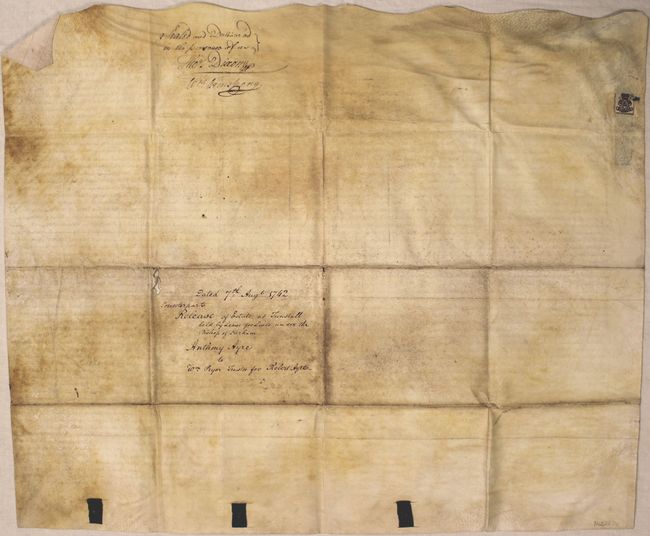 Sealed and Delivered
in the presence of us
Thos. Dixon
Wm. Armstrong
Dated 7th. Augt. 1742
Counterpart
Release of Estate at Tunstall
held by Lease under the
Bishop of Durham
Anthony Ayre
to
Wm. Pryor Trustee for Robert Ayre